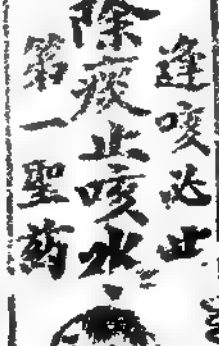 逢咳必止
除痰止咳水
第一聖药